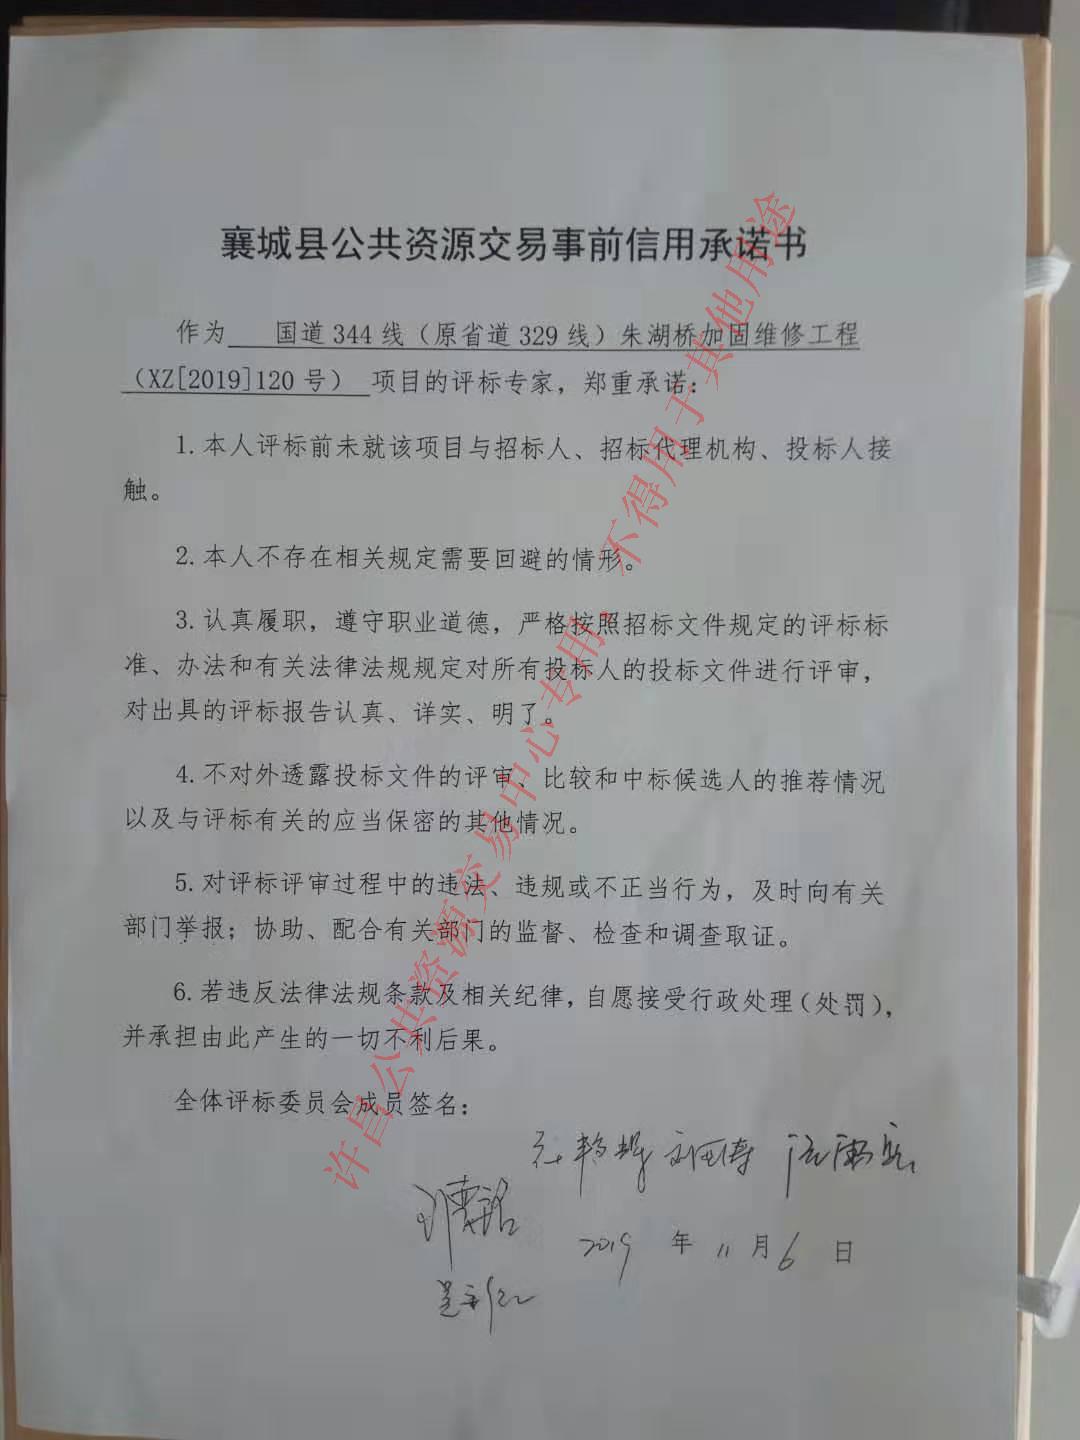 襄城县公共资源交易事前信用承诺书
作为 国道344线（原省道329线）朱湖桥加固维修工程
（XZ[2019]120号） 项目的评标专家，郑重承诺：
1.本人评标前未就该项目与招标人、招标代理机构、投标人接
触。
2.本人不存在相关规定需要回避的情形。
3.认真履职，遵守职业道德，严格按照招标文件规定的评标标
准、办法和有关法律法规规定对所有投标人的投标文件进行评审，
对出具的评标报告认真、详实、明了。
4.不对外透露投标文件的评审、比较和中标候选人的推荐情况
以及与评标有关的应当保密的其他情况。
5.对评标评审过程中的违法、违规或不正当行为，及时向有关
部门举报；协助、配合有关部门的监督、检查和调查取证。
6.若违反法律法规条款及相关纪律，自愿接受行政处理（处罚），
并承担由此产生的一切不利后果。
全体评标委员会成员签名：
2019 年 11 月 6 日
许昌公共资源交易中心专用，不得用于其他用途